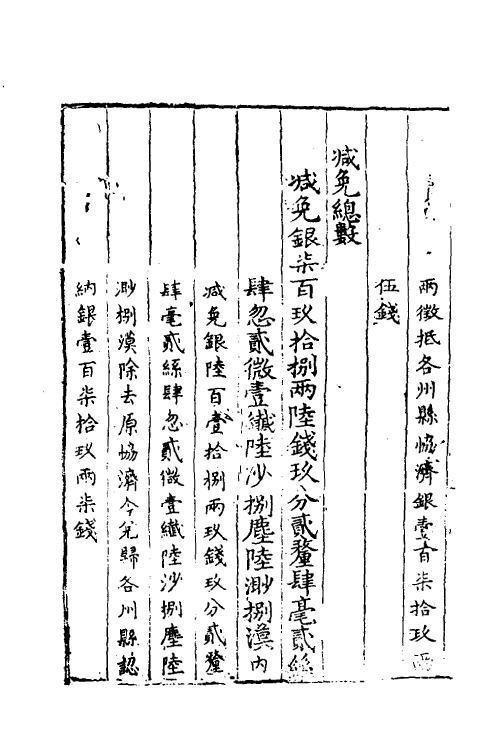 兩徵抵各州縣恊濟銀壹百柒拾玖兩
伍錢
减免總數
减免銀柒百玖拾捌兩陸錢玖分貳釐肆毫貳絲
肆忽貳微壹纎陸沙捌塵陸渺捌漠内
减免銀陸百壹拾捌兩玖錢玖分貳釐
肆毫貳絲肆忽貳微壹纎陸沙捌塵陸
渺捌漠除去原恊濟今免歸各州縣認
納銀壹百柒拾玖兩柒錢